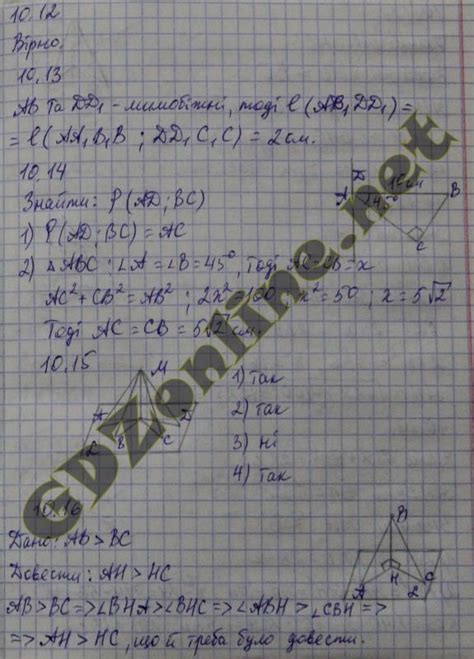 10.12
Вірно.
10.13
AB та DD₁ - мимобіжні, тоді ρ(AB₁ DD₁) =
= ρ(AA₁B₁B ; DD₁C₁C) = 2 см.
10.14
Знайти: ρ(AD; BC)
1) ρ(AD; BC) = AC
2) △ABC: ∠A = ∠B = 45°, тоді AC = CB = x
AC² + CB² = AB² ; 2x² = 100 ; x² = 50 ; x = 5√2
Тоді AC = CB = 5√2 см.
D
A
10 см
B
45°
C
10.15
M
A
B
C
D
α
1) так
2) так
3) ні
4) так
10.16
Дано: AB > BC
Довести: AH > HC
AB > BC => ∠BHA > ∠BHC => ∠ABH > ∠CBH =>
=> AH > HC, що й треба було довести.
B
A
H
C
α
GDZonline.net